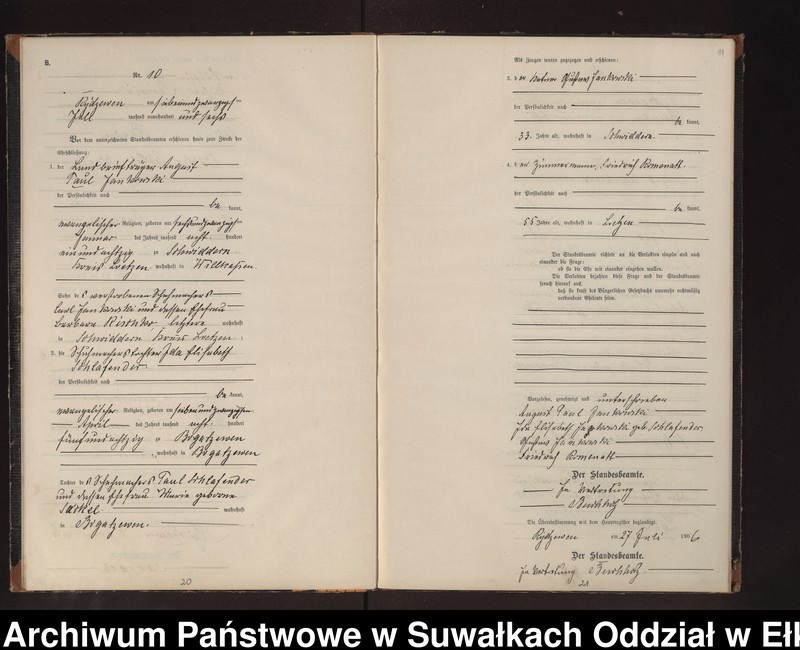 B.
Nr. 10
Rydzewen am siebenundzwanzigsten
Juli tausend neunhundert und sechs
Vor dem unterzeichneten Standesbeamten erschienen heute zum Zwecke der
Eheschließung:
1. der Landbriefträger August
Paul Jankowski
der Persönlichkeit nach
be kannt,
evangelischer Religion, geboren am sechsundzwanzigsten
Januar des Jahres tausend acht hundert
einundachtzig in Schwiddern
Kreis Loetzen, wohnhaft in Willkassen
Sohn des verstorbenen Schuhmachers
Carl Jankowski und dessen Ehefrau
Barbara letztere wohnhaft
in Schwiddern Kreis Loetzen;
2. die Schuhmacherstochter Ida Elisabeth
Schlafender
der Persönlichkeit nach
be kannt,
evangelischer Religion, geboren am siebenundzwanzigsten
April des Jahres tausend acht hundert
fünfundachtzig in Bogatzewen
, wohnhaft in Bogatzewen
Tochter des Schuhmachers Paul Schlafender
und dessen Ehefrau Marie geborene
wohnhaft
in Bogatzewen.
20
11
Als Zeugen waren zugezogen und erschienen:
3. der Gustav Jankowski
der Persönlichkeit nach
be kannt,
33 Jahre alt, wohnhaft in Schwiddern
4. der Zimmermann Friedrich Romenatt
der Persönlichkeit nach
be kannt,
55 Jahre alt, wohnhaft in Lietzen
Der Standesbeamte richtete an die Verlobten einzeln und nach
einander die Frage:
ob sie die Ehe mit einander eingehen wollen.
Die Verlobten bejahten diese Frage und der Standesbeamte
sprach hierauf aus,
daß sie kraft des Bürgerlichen Gesetzbuchs nunmehr rechtmäßig
verbundene Eheleute seien.
Vorgelesen, genehmigt und unterschrieben
August Paul Jankowski
Ida Elisabeth Jankowski geb. Schlafender
Gustav Jankowski
Friedrich Romenatt
Der Standesbeamte.
In Vertretung
Buchholz
Die Übereinstimmung mit dem Hauptregister beglaubigt.
Rydzewen am 27 Juli 1906
Der Standesbeamte.
In Vertretung Buchholz
21
Archiwum Państwowe w Suwałkach Oddział w Ełk